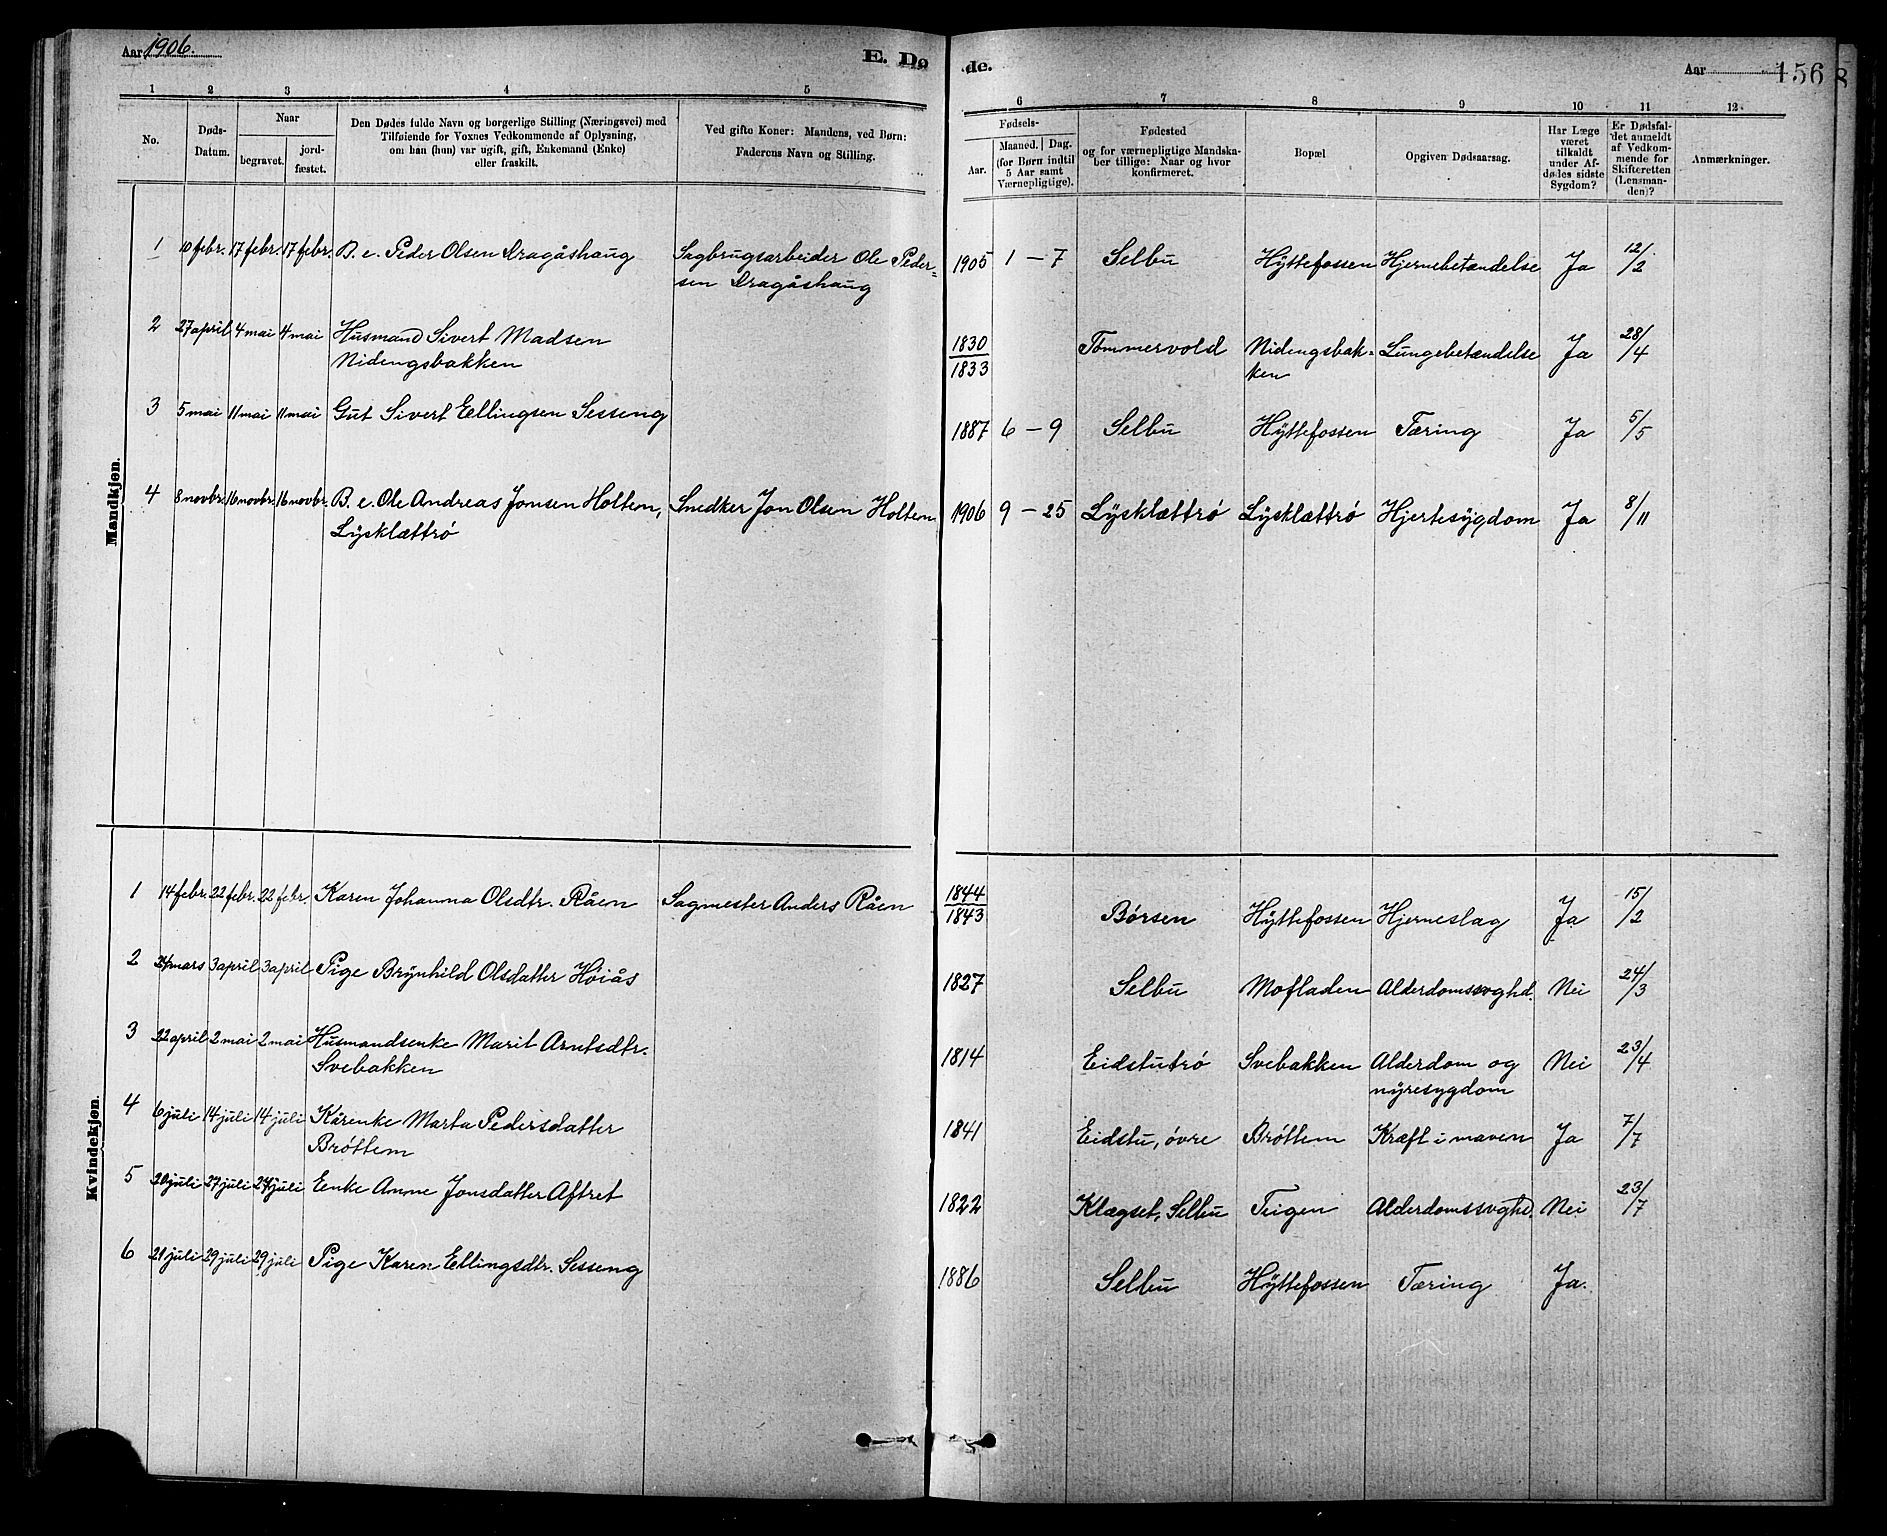 Aar 1906.
E. Døde.
Aar 156
1 2 3 4 5 6 7 8 9 10 11 12
No.
Døds-Datum.
Naar
begravet.
jordfæstet.
Den Dødes fulde Navn og borgerlige Stilling (Næringsvei) med
Tilføiende for Voxnes Vedkommende af Oplysning,
om han (hun) var ugift, gift, Enkemand (Enke)
eller fraskilt.
Ved gifte Koner: Mandens, ved Børn:
Faderens Navn og Stilling.
Fødsels-
Aar.
Maaned. Dag.
(for Børn indtil
5 Aar samt
Værnepligtige).
Fødested
og for værnepligtige Mandskaber tillige: Naar og hvor
konfirmeret.
Bopæl
Opgiven Dødsaarsag.
Har Læge
været
tilkaldt
under Afdødes sidste
Sygdom?
Er Dødsfaldet anmeldt
af Vedkommende for
Skifteretten
(Lensmanden)?
Anmærkninger.
Mandkjøn.
1 10 febr. 17 febr. 17 febr. B. e. Peder Olsen Dragåshaug Sagbrugsarbeider Ole Peder- 1905 1 – 7 Selbu Hyttefossen Hjernebetændelse Ja 12/2
sen Dragåshaug
2 27 april 4 mai 4 mai Husmand Sivert Madsen 1830/1833 Tømmervold Nidengsbak- Lungebetændelse Ja 28/4
Nidengsbakken ken
3 5 mai 11 mai 11 mai Gut Sivert Ellingsen Sesseng 1887 6 – 9 Selbu Hyttefossen Tæring Ja 5/5
4 8 novbr. 16 novbr. 16 novbr. B. e. Ole Andreas Jonsen Holtem, Snedker Jon Olsen Holtem 1906 9 – 25 Lysklættrø Lysklættrø Hjertesygdom Ja 8/11
Lysklættrø
Kvindekjøn.
1 14 febr. 22 febr. 22 febr. Karen Johanna Olsdtr. Råen Sagmester Anders Råen 1844/1843 Børsen Hyttefossen Hjerneslag Ja 15/2
2 24 mars 3 april 3 april Pige Brynhild Olsdatter Høiås 1827 Selbu Mofladen Alderdomssvghd. Nei 24/3
3 22 april 2 mai 2 mai Husmandsenke Marit Arntsdtr. 1814 Eidstutrø Svebakken Alderdom og Nei 23/4
Svebakken nyresygdom
4 6 juli 14 juli 14 juli Kårenke Marta Pedersdatter 1841 Eidstu, øvre Brøttem Kræft i maven Ja 7/7
Brøttem
5 20 juli 27 juli 27 juli Enke Anne Jonsdatter Aftret 1822 Klegset, Selbu Teigen Alderdomssvghd. Nei 23/7
6 21 juli 29 juli 29 juli Pige Karen Ellingsdtr. Sesseng 1886 Selbu Hyttefossen Tæring Ja.